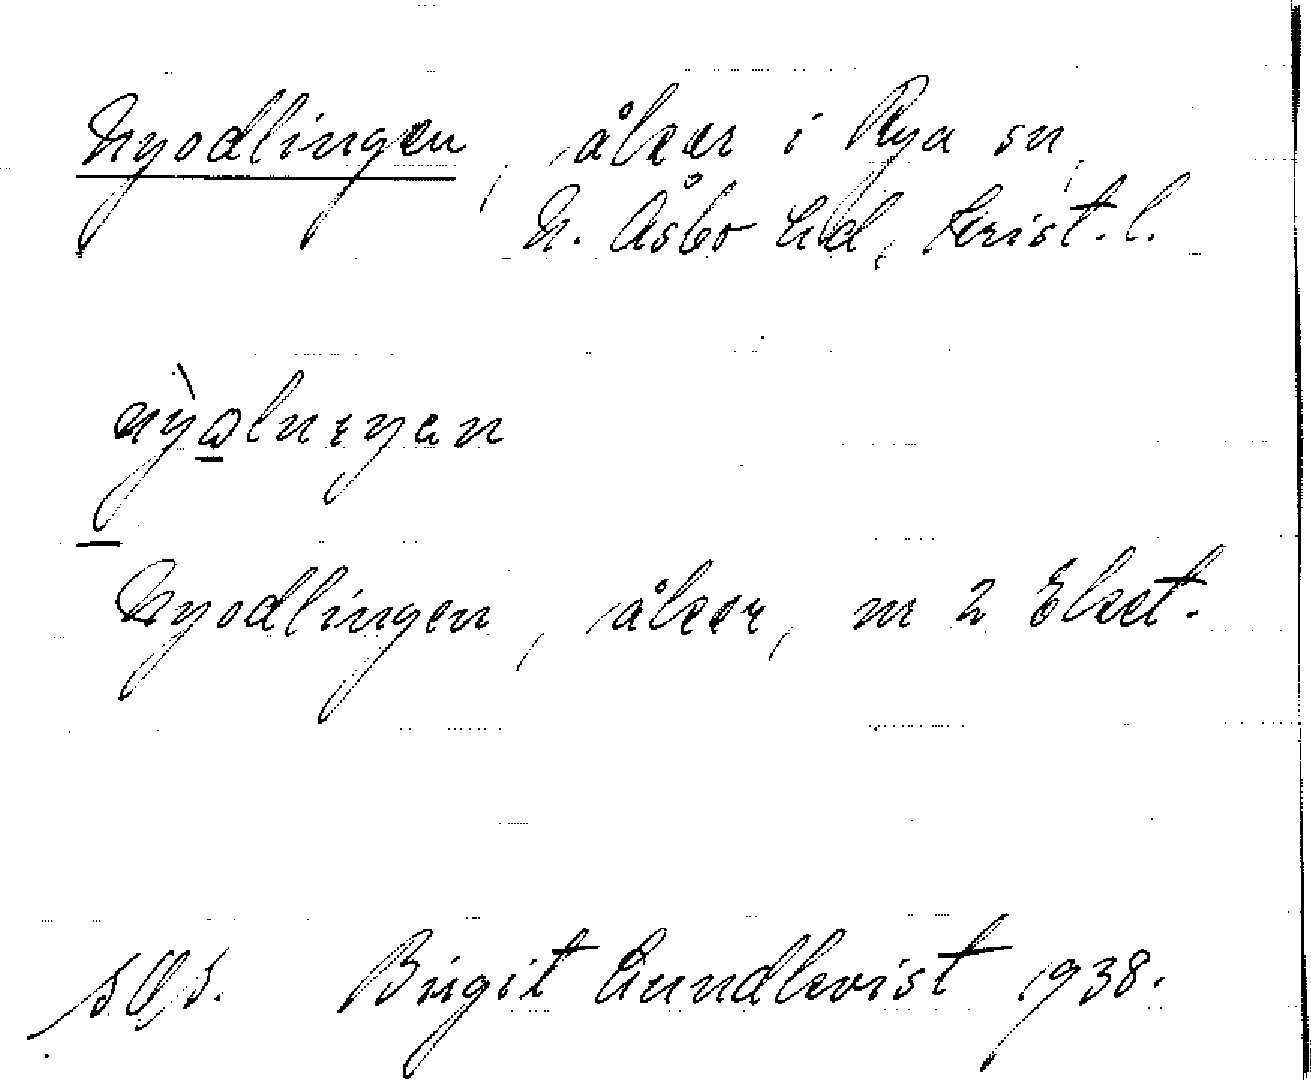 Nyodlingen, åker i Rya sn,
N. Åsbo hd, Krist. l.
Nyodlingen, åker, m 2 Eket.
Birgit Lundkvist 1938.